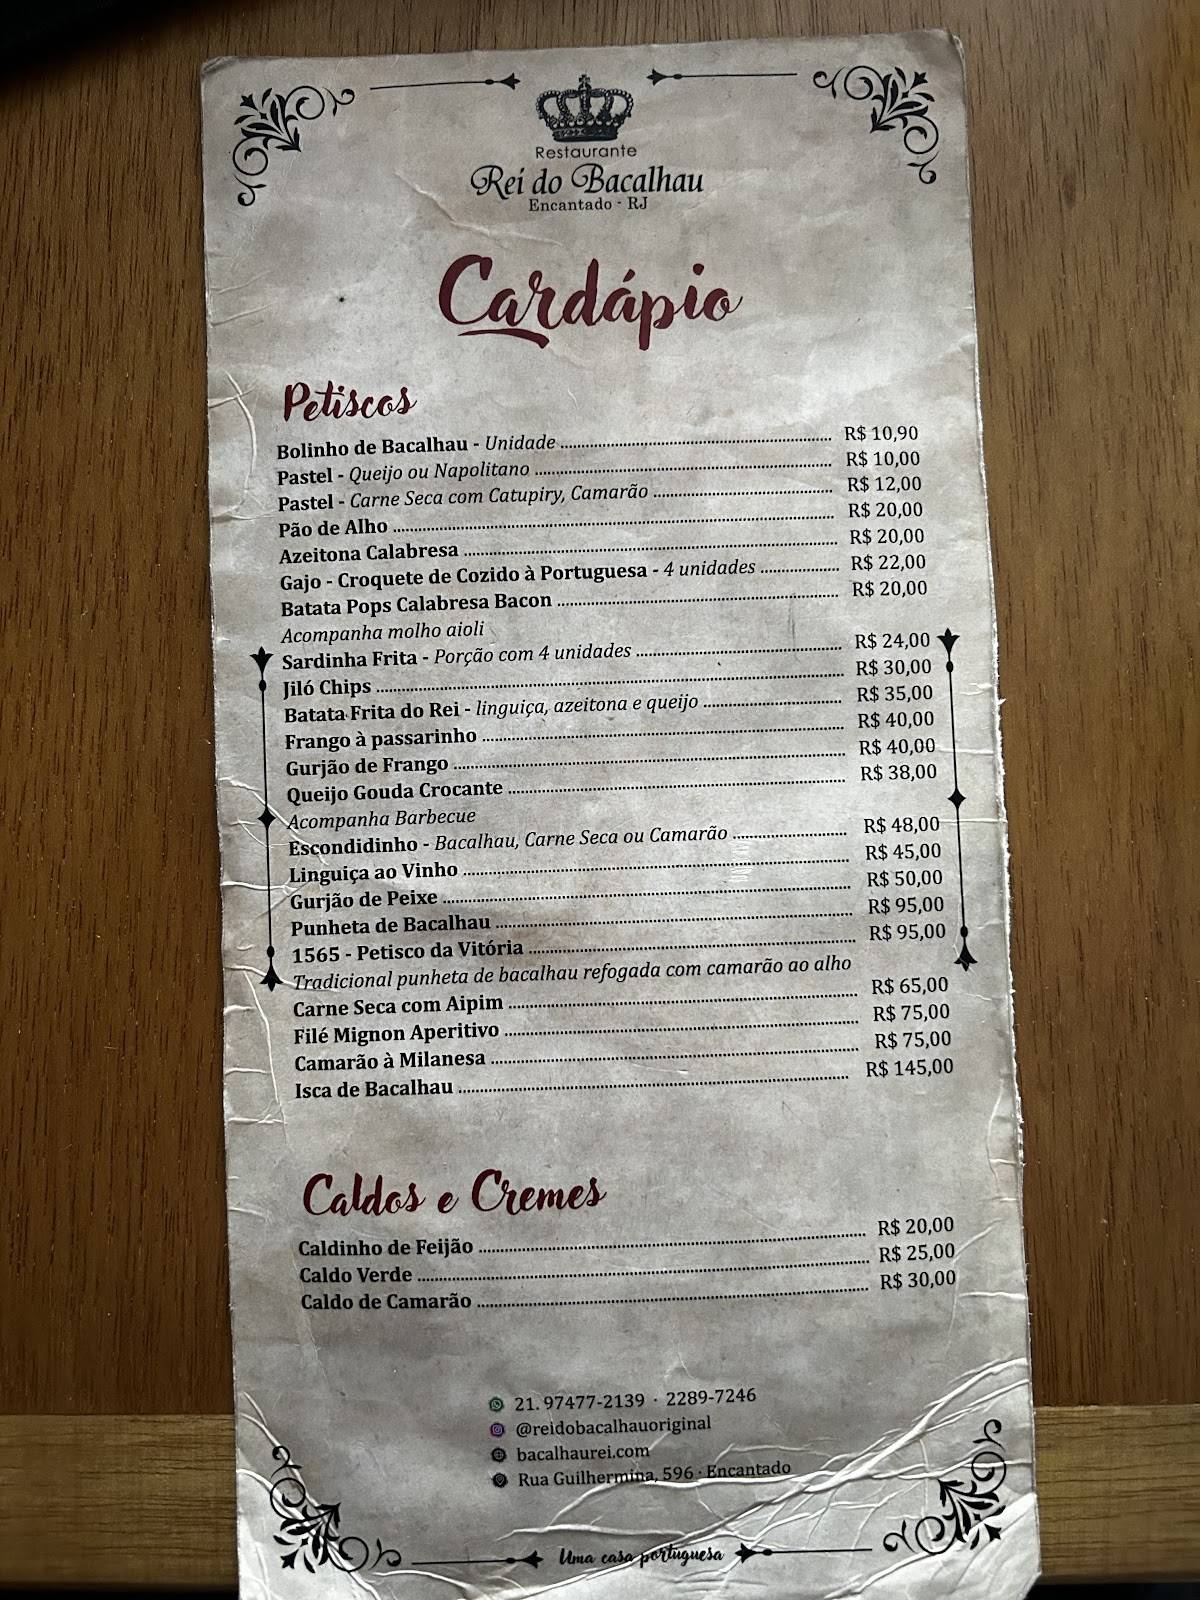 Restaurante
Rei do Bacalhau
Encantado - RJ
Cardápio
Petiscos
Bolinho de Bacalhau - Unidade R$ 10,90
Pastel - Queijo ou Napolitano R$ 10,00
Pastel - Carne Seca com Catupiry, Camarão R$ 12,00
Pão de Alho R$ 20,00
Azeitona Calabresa R$ 20,00
Gajo - Croquete de Cozido à Portuguesa - 4 unidades R$ 22,00
Batata Pops Calabresa Bacon R$ 20,00
Acompanha molho aioli
Sardinha Frita - Porção com 4 unidades R$ 24,00
Jiló Chips R$ 30,00
Batata Frita do Rei - linguiça, azeitona e queijo R$ 35,00
Frango à passarinho R$ 40,00
Gurjão de Frango R$ 40,00
Queijo Gouda Crocante R$ 38,00
Acompanha Barbecue
Escondidinho - Bacalhau, Carne Seca ou Camarão R$ 48,00
Linguiça ao Vinho R$ 45,00
Gurjão de Peixe R$ 50,00
Punheta de Bacalhau R$ 95,00
1565 - Petisco da Vitória R$ 95,00
Tradicional punheta de bacalhau refogada com camarão ao alho
Carne Seca com Aipim R$ 65,00
Filé Mignon Aperitivo R$ 75,00
Camarão à Milanesa R$ 75,00
Isca de Bacalhau R$ 145,00
Caldos e Cremes
Caldinho de Feijão R$ 20,00
Caldo Verde R$ 25,00
Caldo de Camarão R$ 30,00
21. 97477-2139 · 2289-7246
@reidobacalhauoriginal
bacalhaurei.com
Rua Guilhermina, 596 · Encantado
Uma casa portuguesa